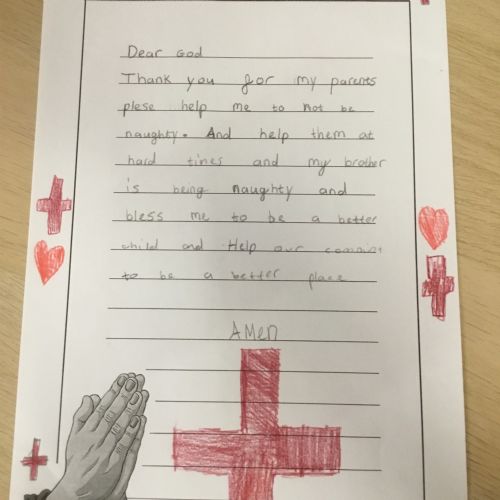 Dear God
Thank you for my parents
plese help me to not be
naughty. And help them at
hard tines and my brother
is being naughty and
bless me to be a better
child and Help our
to be a better place
AMEN